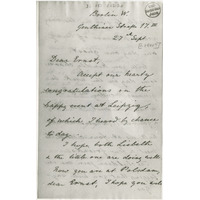 Berlin W.
Genthiner Strasse 17 III
27th Sept.
Dear Ernst,
Accept our hearty
congratulations on the
happy event at Leipzig
of which I heard by chance
to-day.
I hope both Lisbeth
& the little one are doing well.
Now you are at Potsdam,
dear Ernst, I hope you will